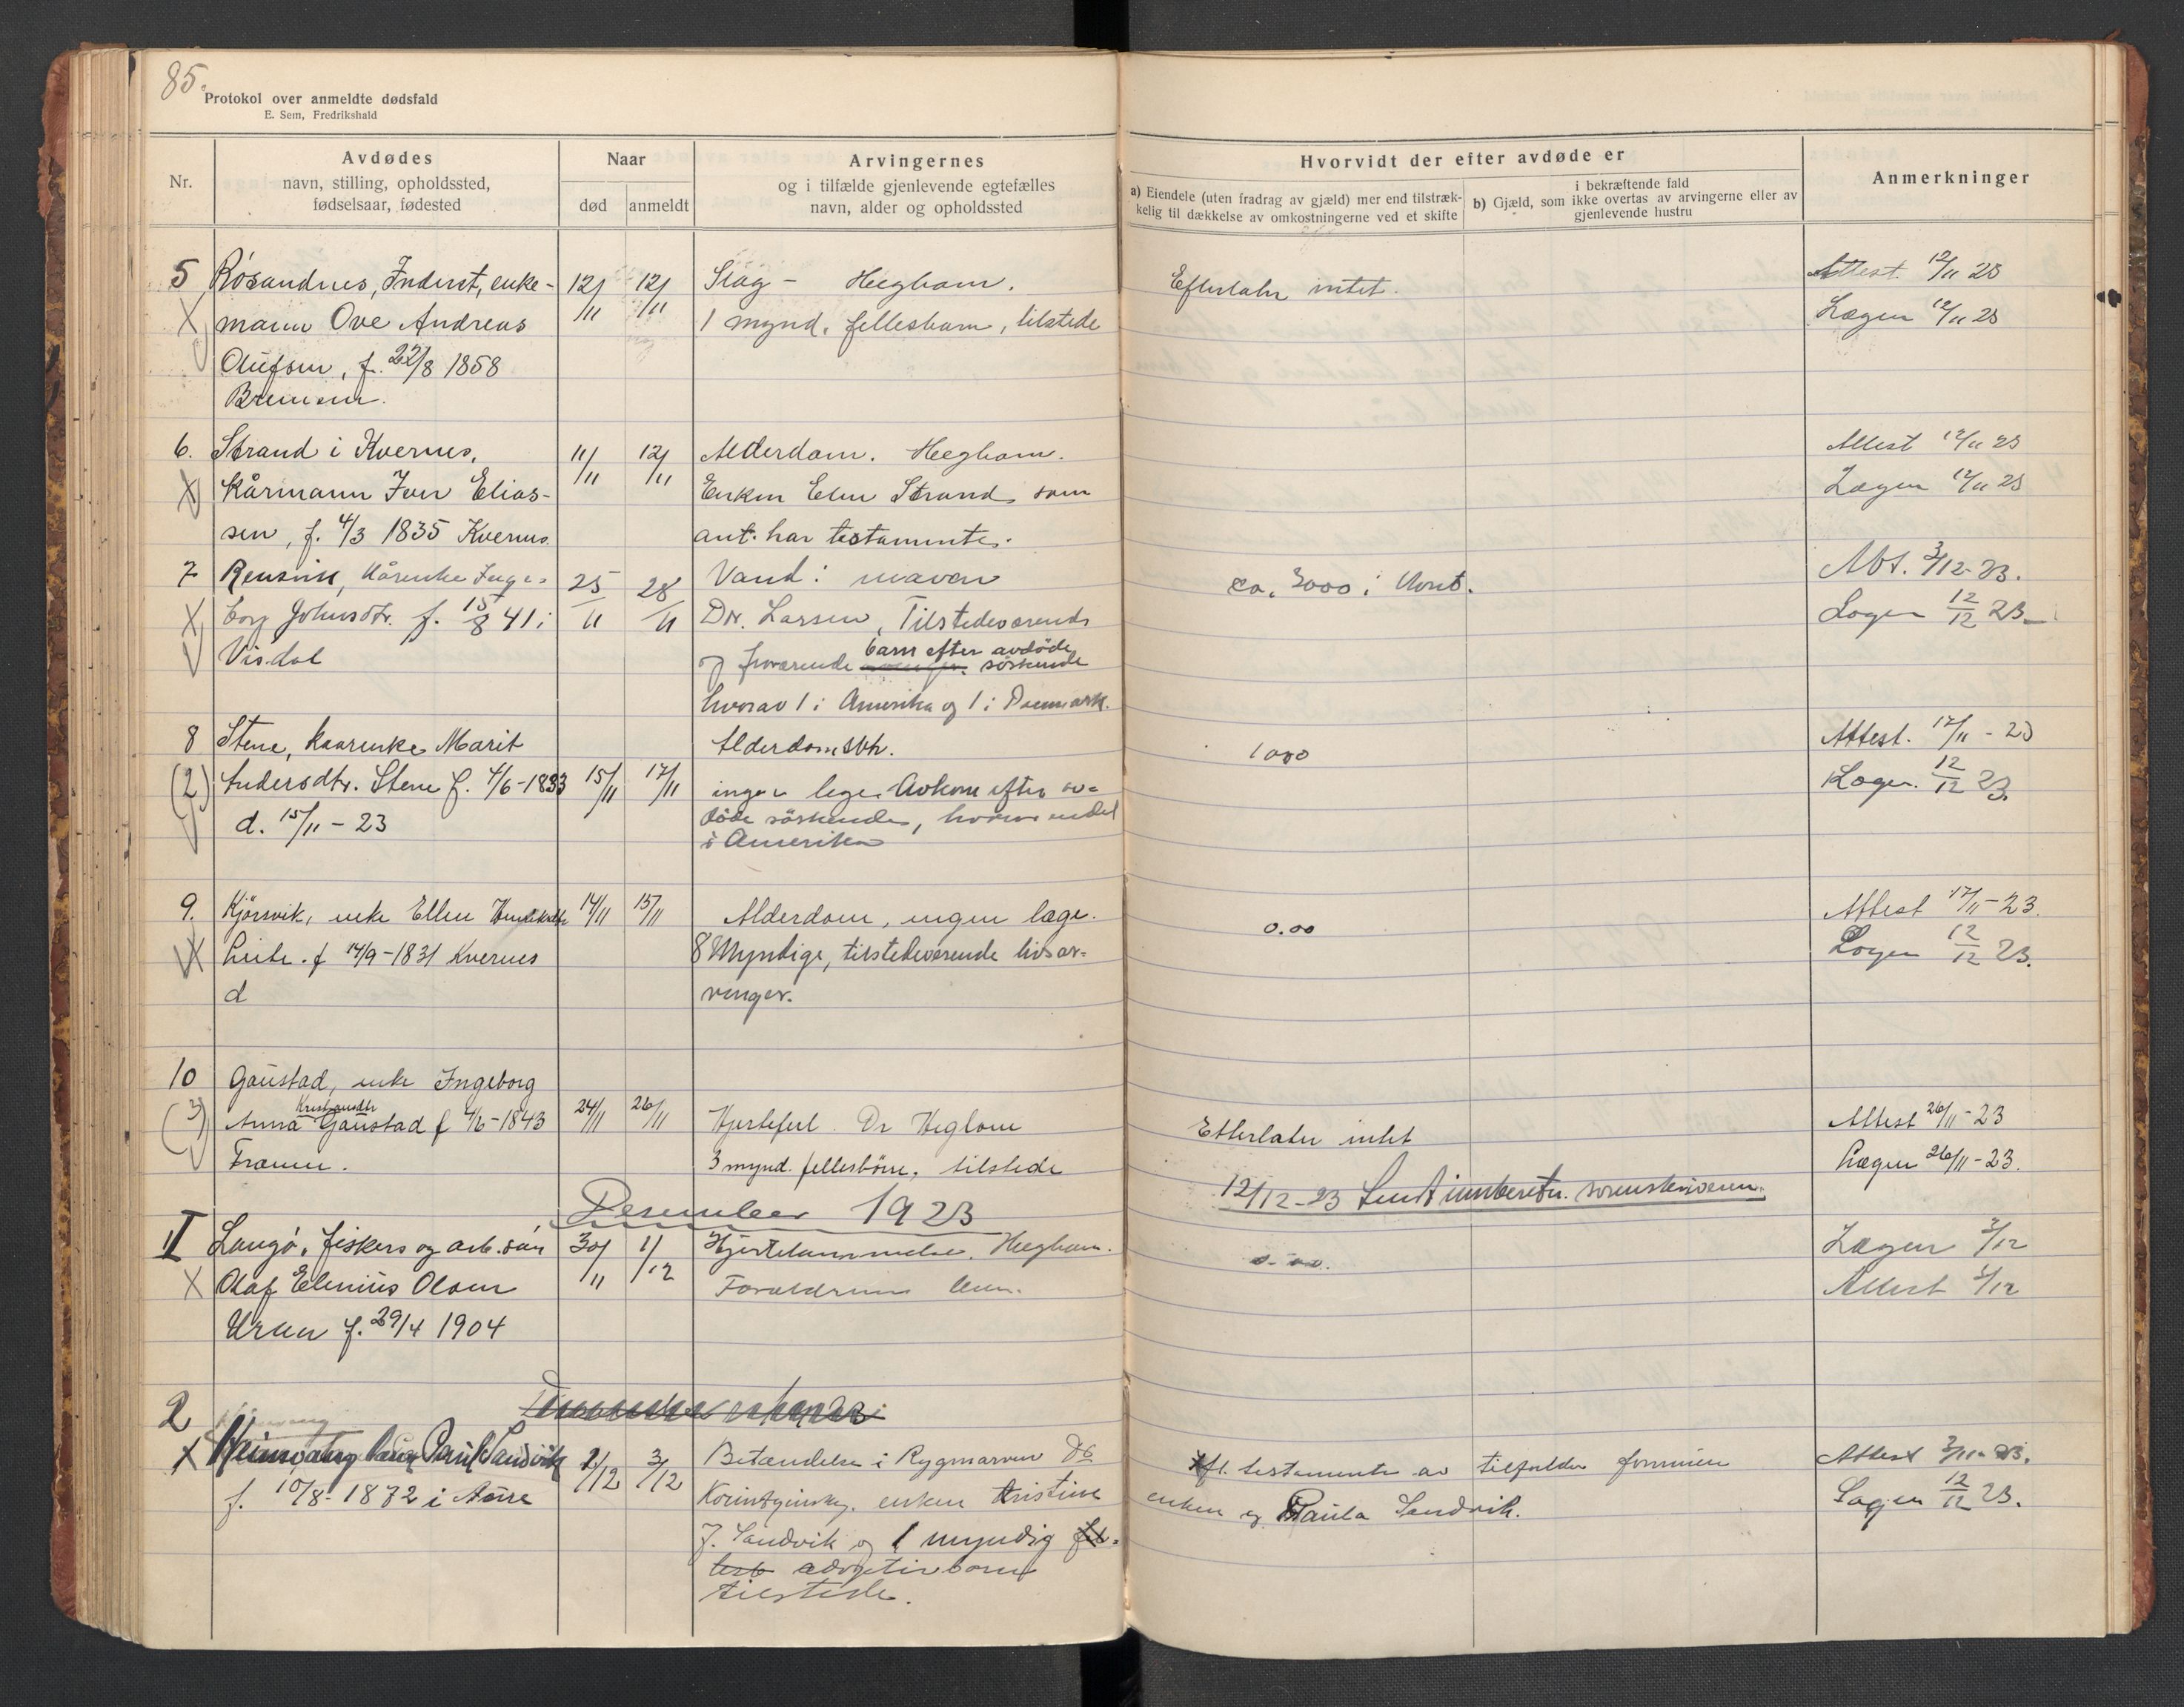 85.
Protokol over anmeldte dødsfald
E. Sem, Fredrikshald
Nr.
Avdødes
navn, stilling, opholdssted,
fødselsaar, fødested
Naar
død
anmeldt
Arvingernes
og i tilfælde gjenlevende egtefælles
navn, alder og opholdssted
Hvorvidt der efter avdøde er
a) Eiendele (uten fradrag av gjæld) mer end tilstræk-
kelig til dækkelse av omkostningerne ved et skifte
i bekræftende fald
b) Gjæld, som ikke overtas av arvingerne eller av
gjenlevende hustru
Anmerkninger
5 Rosandnes, Inderst, enke- 12/11 12/11 Slag - Heghom. Efterlater intet. Attest 12/11 23
X mann Ove Andreas 1 mynd. fellesbarn, tilstede Lægen 12/11 23
Olufsen, f. 22/8 1858
Bremsnes.
6. Strand i Kvernes, 11/11 12/11 Alderdom. Heghom. Attest 12/11 23
X kårmann Iver Elias- Enken Elen Strand, som Lægen 12/11 23
sen, f. 4/3 1835 Kvernes ant. har testamente.
7 Rensvik, kårenke Inge- 25/11 28/11 Vand i maven ca. 3000 i Kont. Att. 3/12-23.
X borg Johnsdtr. f. 15/8 41 i Dr. Larsen, Tilstedeværende Lægen 12/12 23
Visdal og fraværende barn efter avdöde söskende
hvorav 1 i Amerika og 1 i Danmark.
8 Stene, kaarenke Marit Alderdomssvh. 1000 Attest. 17/11 - 23
(2) Andersdtr. Stene f. 4/6-1833 15/11 17/11 ingen lege. Avkom efter av- Lægen. 12/12 23.
d. 15/11 - 23 døde söskende, hvorav endel
i Amerika
9. Kjörsvik, enke Ellen 14/11 15/11 Alderdom, ingen læge. 0.00 Attest 17/11-23.
X f. 14/9-1831 Kvernes 8 Myndige, tilstedeværende livsar- Lægen 12/12 23.
d vinger.
10 Gaustad, enke Ingeborg
(3) Anna Kristiansdtr Gaustad f 4/6-1843 24/11 26/11 Hjertefeil. Dr Heglom Etterlater intet Attest 26/11-23
Frænen. 3 mynd. fellesbörn, tilstede Lægen 26/11-23.
12/12-23 Sendt innberetn. sorenskriveren.
Desember 1923
1 Langö, fiskers og arb. sön 30/11 1/12 Hjertelammelse. Heghom. 0.00. Lægen 3/12
X Olaf Elenius Olsen Forældrene Attest 3/12
f. 29/4 1904
2
X Paul Sandvik 2/12 3/12 Betændelse i Rygmarven Dr. Ifl. testamente av tilfalder formuen Attest
f. 10/8-1872 i Aure enken Kristine enken og Paula Sandvik. Lægen 12/12 23.
J. Sandvik og 1 myndig
adoptivbarn
tilstede.